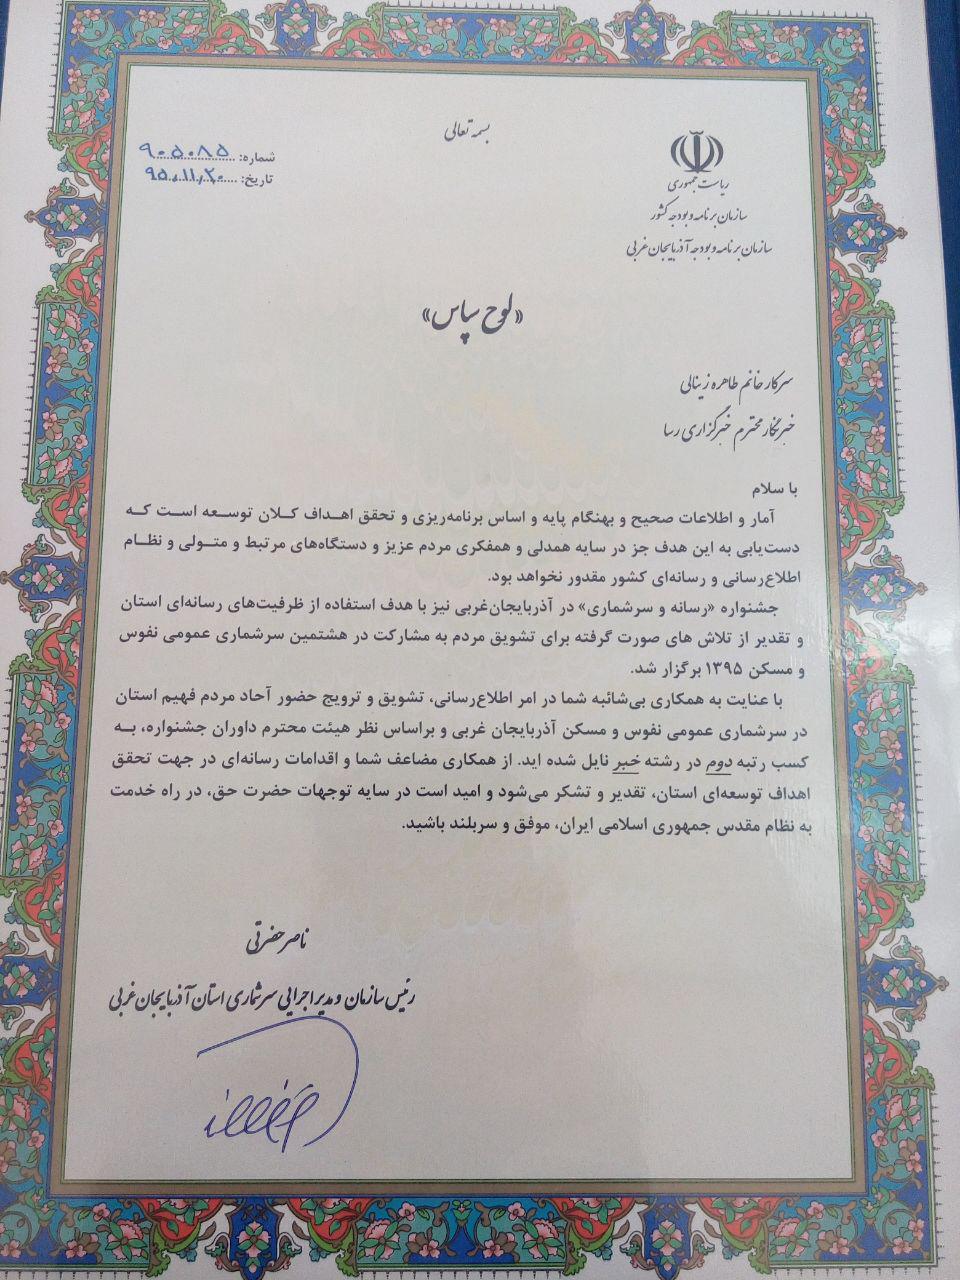 بسمه تعالی
ریاست جمهوری
سازمان برنامه و بودجه کشور
سازمان برنامه و بودجه آذربایجان غربی
شماره: ۹۰۵۰۸۵
تاریخ: ۹۵،۱۱،۲۰
«لوح سپاس»
سرکار خانم طاهره زینالی
خبرنگار محترم خبرگزاری رسا
با سلام
آمار و اطلاعات صحیح و بهنگام پایه و اساس برنامه‌ریزی و تحقق اهداف کلان توسعه است که
دست‌یابی به این هدف جز در سایه همدلی و همفکری مردم عزیز و دستگاه‌های مرتبط و متولی و نظام
اطلاع‌رسانی و رسانه‌ای کشور مقدور نخواهد بود.
جشنواره «رسانه و سرشماری» در آذربایجان‌غربی نیز با هدف استفاده از ظرفیت‌های رسانه‌ای استان
و تقدیر از تلاش های صورت گرفته برای تشویق مردم به مشارکت در هشتمین سرشماری عمومی نفوس
و مسکن ۱۳۹۵ برگزار شد.
با عنایت به همکاری بی‌شائبه شما در امر اطلاع‌رسانی، تشویق و ترویج حضور آحاد مردم فهیم استان
در سرشماری عمومی نفوس و مسکن آذربایجان غربی و براساس نظر هیئت محترم داوران جشنواره، به
کسب رتبه دوم در رشته خبر نایل شده اید. از همکاری مضاعف شما و اقدامات رسانه‌ای در جهت تحقق
اهداف توسعه‌ای استان، تقدیر و تشکر می‌شود و امید است در سایه توجهات حضرت حق، در راه خدمت
به نظام مقدس جمهوری اسلامی ایران، موفق و سربلند باشید.
ناصر حضرتی
رئیس سازمان و مدیر اجرایی سرشماری استان آذربایجان غربی